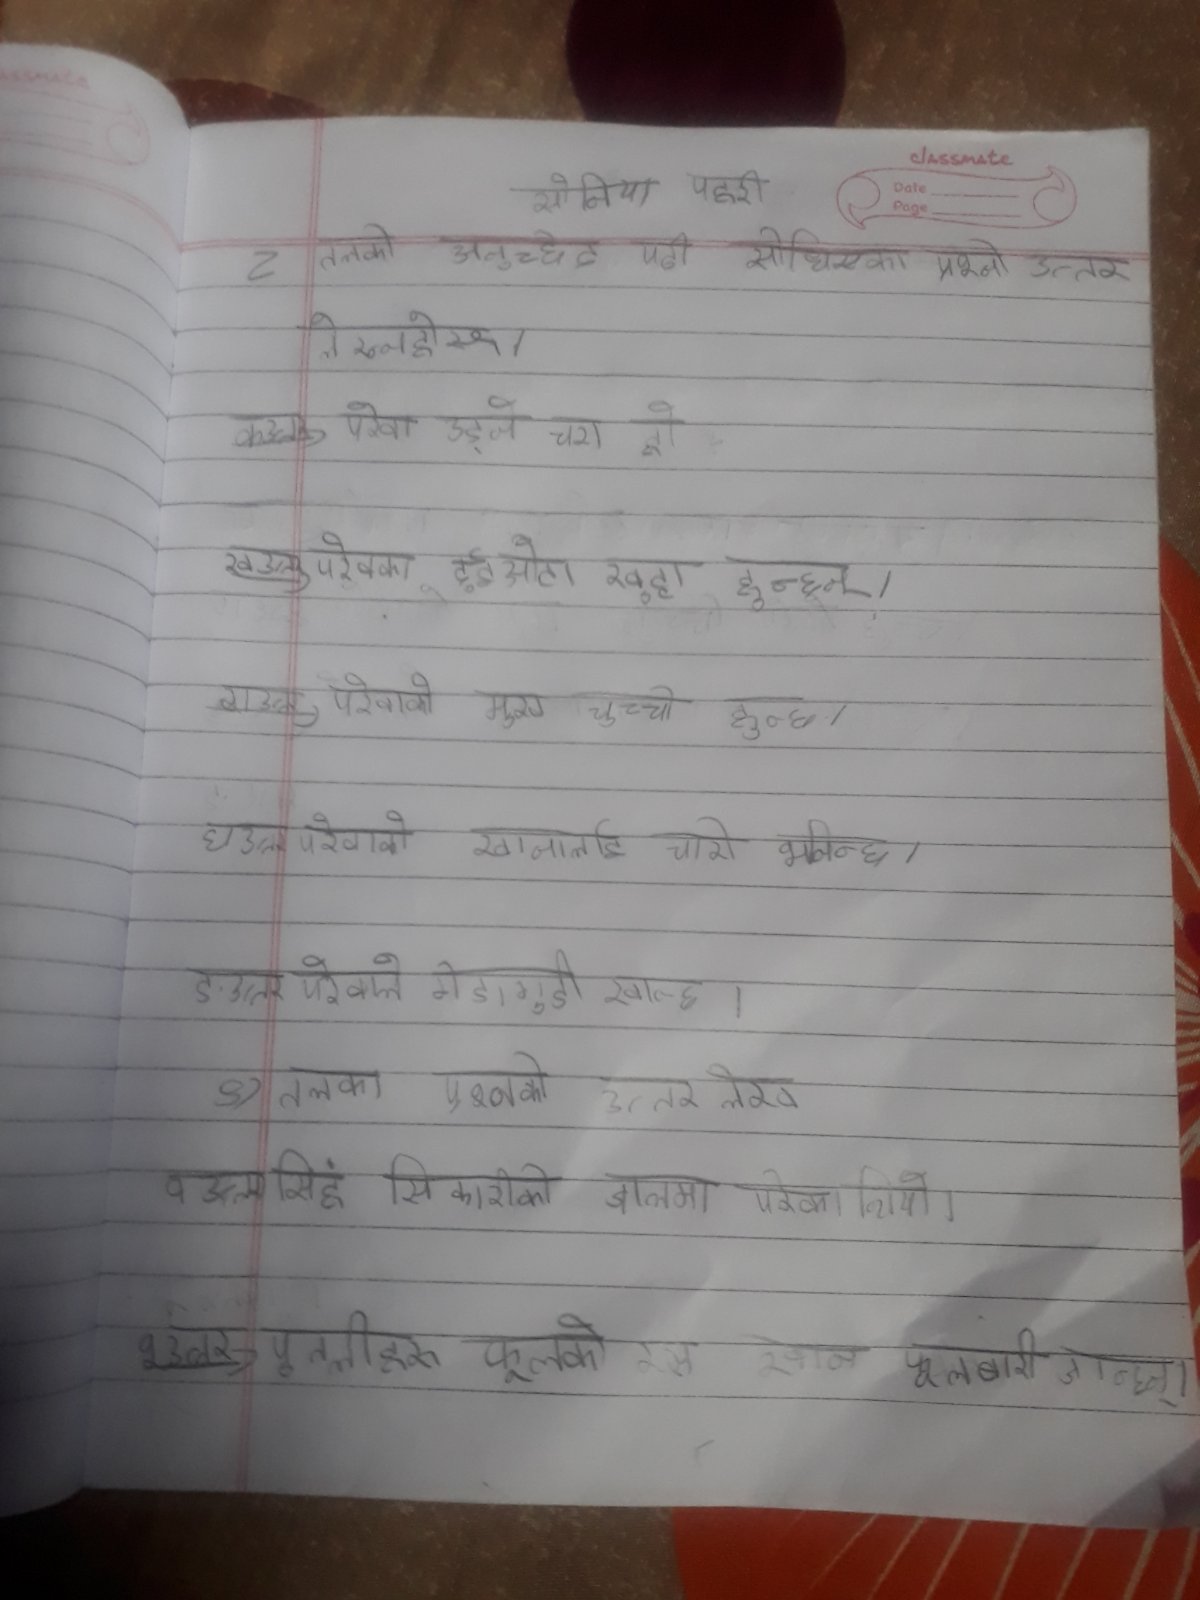 classmate
Date
Page
सोनिया पहरी
तलको अनुच्छेद पढी सोधिएका प्रश्नो उत्तर
परेवा उड्ने चरा हो
परेवका दुईओटा खुट्टा हुन्छन् ।
परेवाको मुख चुच्चो हुन्छ ।
घ उत्तर परेवाको खानालाई चारो भनिन्छ ।
ङ उत्तर परेवाले गेडागुडी खान्छ ।
तलका प्रश्नको उत्तर लेख
सिहं सिकारीको जालमा परेका थियो ।
पुतलीहरू फूलको रस खान फूलबारी जान्छन् ।